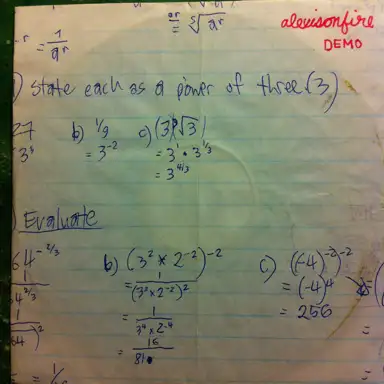 -r = 1/a^r
= ⁵√a^r
alexisonfire
DEMO
) State each as a power of three (3)
27 b) 1/9 c) (3)(√3)
3³ = 3^-2 = 3^1 • 3^1/3
= 3^4/3
) Evaluate
64^-2/3 b) (3² × 2^-2)^-2 c) ((-4)^-2)^-2
1/64^2/3 = 1/(3² × 2^-2)² = (-4)^4
= 1/3^4 × 2^-4 = 256
= 16/81